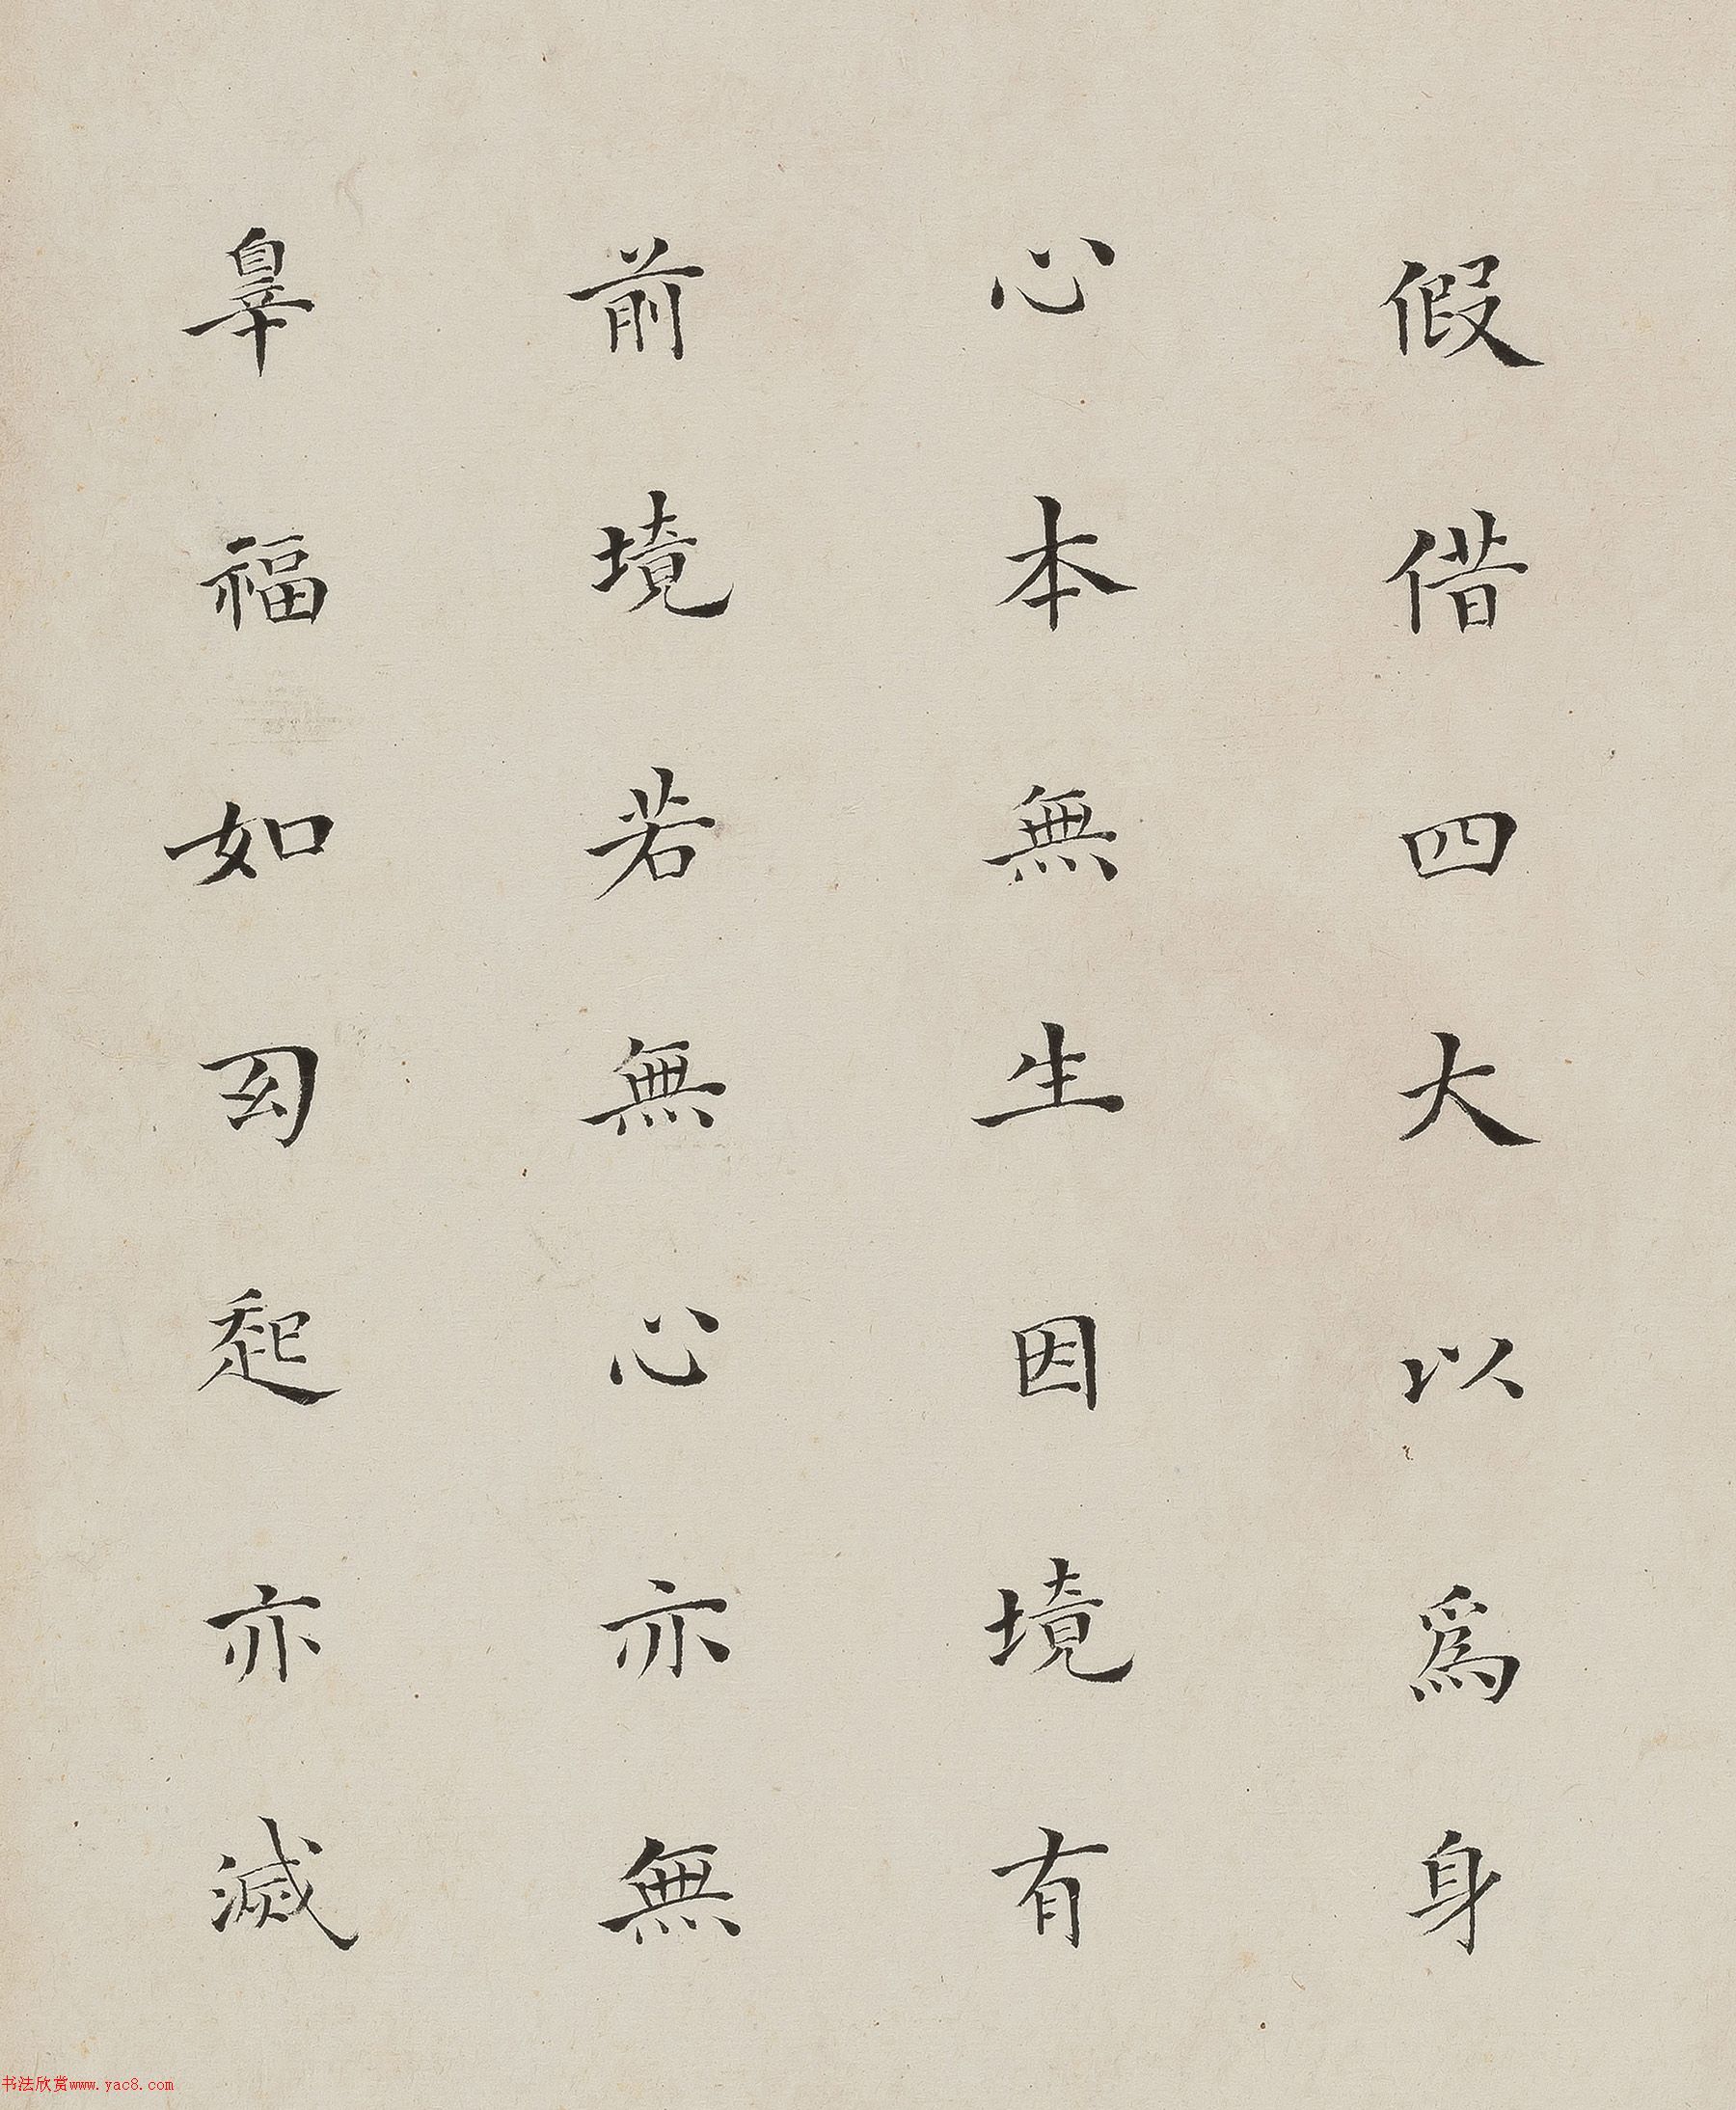 假借四大以為身
心本無生因境有
前境若無心亦無
辠福如幻起亦滅
书法欣赏www.yac8.com